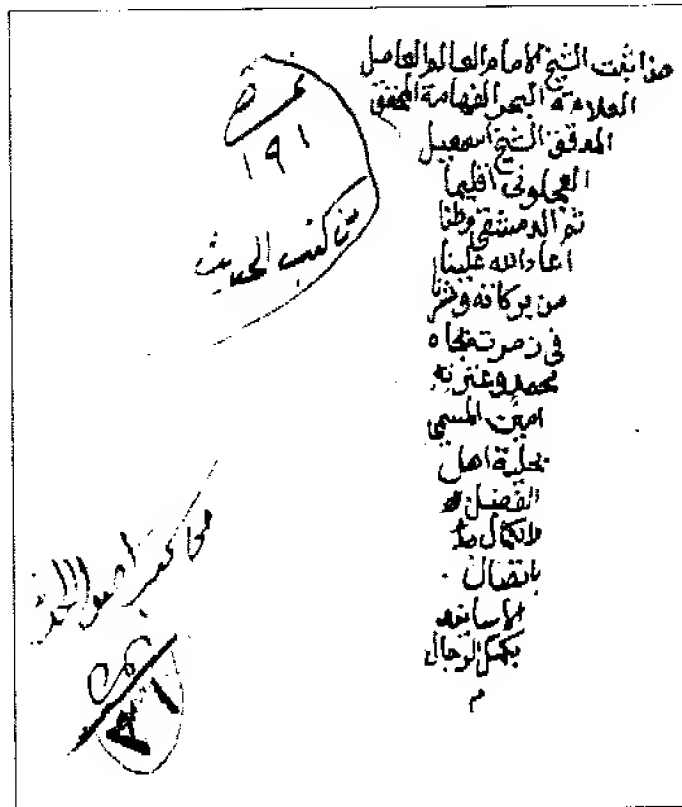 هذا ثبت الشيخ الامام العالم العامل
العلامة البحر الفهامة المحقق
المدقق الشيخ اسمعيل
العجلونى اقليما
ثم الدمشقى وطنا
اعاد الله علينا
من بركاته وحشرنا
فى زمرته بجاه
محمد وعترته
امين المسمى
بحلية اهل
الفضل
والكمال
باتصال
الاسانيد
بكمل الرجال
م
نمرة
١٩١
من كتب الحديث
٨١